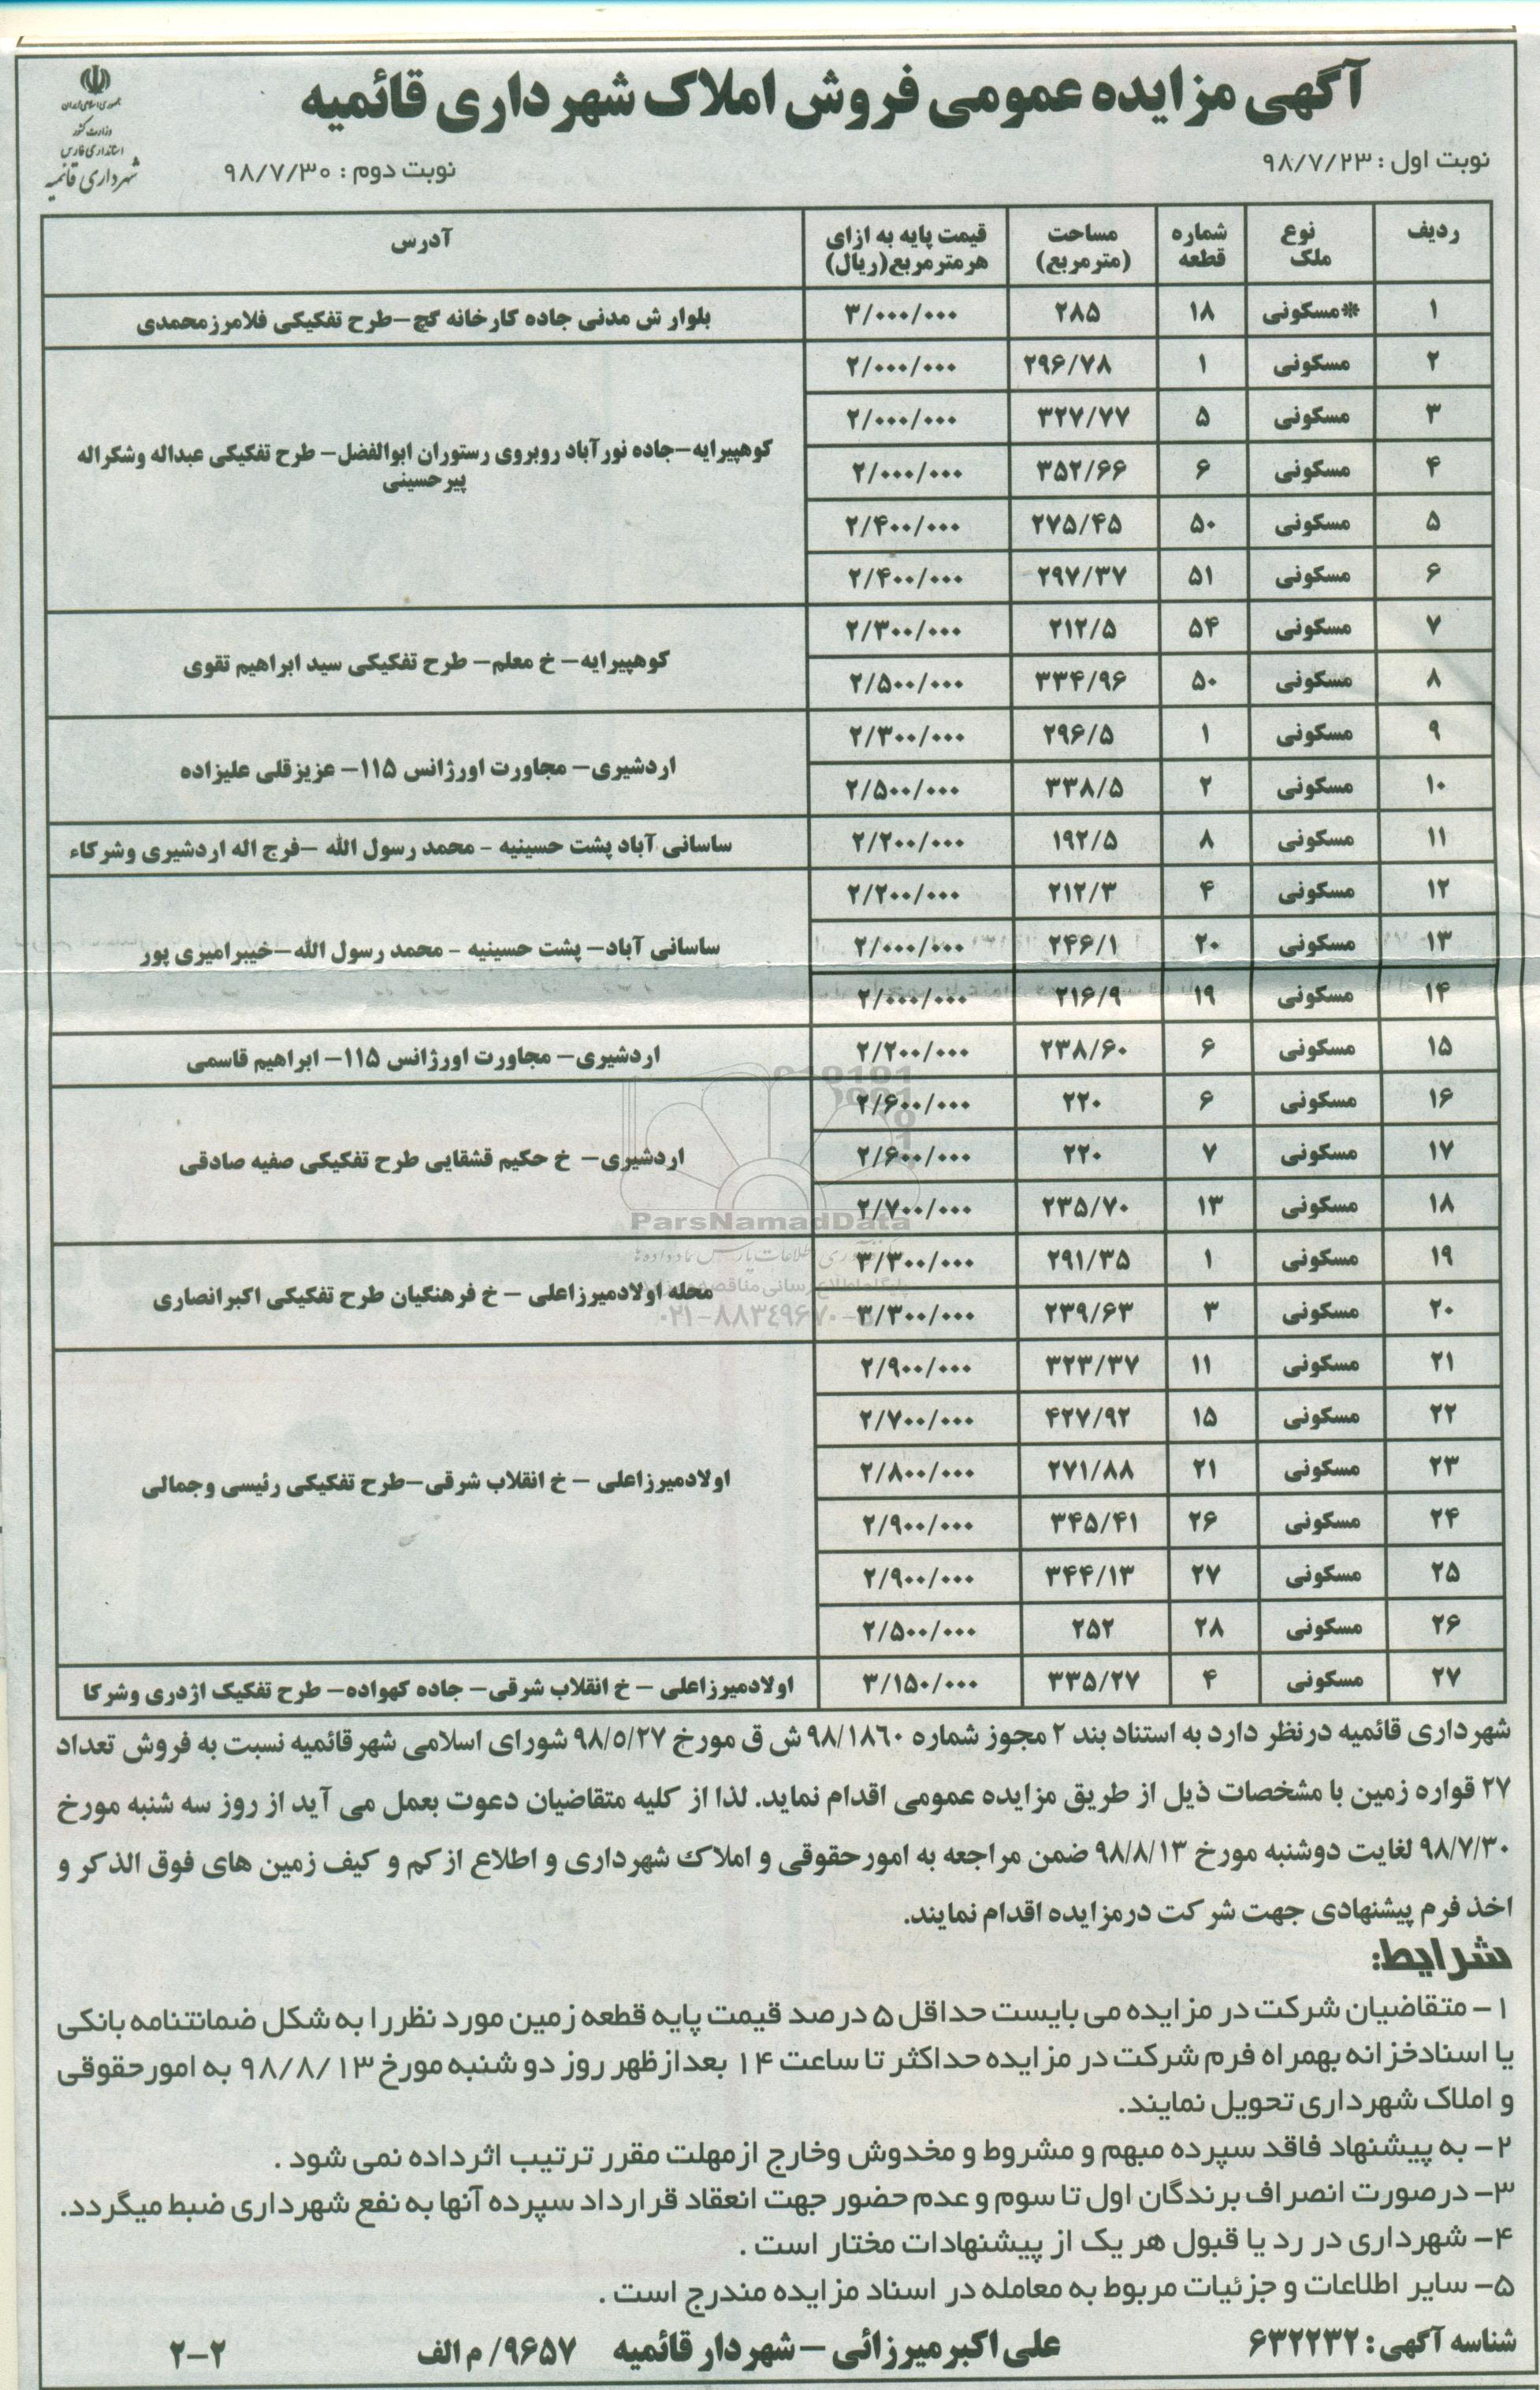 آگهی مزایده عمومی فروش املاک شهرداری قائمیه
جمهوری اسلامی ایران
وزارت کشور
استانداری فارس
شهرداری قائمیه
نوبت اول : ۹۸/۷/۲۳
نوبت دوم : ۹۸/۷/۳۰
ردیف نوع ملک شماره قطعه مساحت (مترمربع) قیمت پایه به ازای هرمترمربع(ریال) آدرس
۱ *مسکونی ۱۸ ۲۸۵ ۳/۰۰۰/۰۰۰ بلوار ش مدنی جاده کارخانه گچ-طرح تفکیکی فلامرزمحمدی
۲ مسکونی ۱ ۲۹۶/۷۸ ۲/۰۰۰/۰۰۰
۳ مسکونی ۵ ۳۲۷/۷۷ ۲/۰۰۰/۰۰۰
کوهپیرایه-جاده نورآباد روبروی رستوران ابوالفضل- طرح تفکیکی عبداله وشکراله
پیرحسینی
۴ مسکونی ۶ ۳۵۲/۶۶ ۲/۰۰۰/۰۰۰
۵ مسکونی ۵۰ ۲۷۵/۴۵ ۲/۴۰۰/۰۰۰
۶ مسکونی ۵۱ ۲۹۷/۳۷ ۲/۴۰۰/۰۰۰
۷ مسکونی ۵۴ ۲۱۲/۵ ۲/۳۰۰/۰۰۰
کوهپیرایه- خ معلم- طرح تفکیکی سید ابراهیم تقوی
۸ مسکونی ۵۰ ۳۳۴/۹۶ ۲/۵۰۰/۰۰۰
۹ مسکونی ۱ ۲۹۶/۵ ۲/۳۰۰/۰۰۰
اردشیری- مجاورت اورژانس ۱۱۵- عزیزقلی علیزاده
۱۰ مسکونی ۲ ۳۳۸/۵ ۲/۵۰۰/۰۰۰
۱۱ مسکونی ۸ ۱۹۲/۵ ۲/۲۰۰/۰۰۰ ساسانی آباد پشت حسینیه - محمد رسول الله -فرج اله اردشیری وشرکاء
۱۲ مسکونی ۴ ۲۱۲/۳ ۲/۲۰۰/۰۰۰
۱۳ مسکونی ۲۰ ۲۴۶/۱ ۲/۰۰۰/۰۰۰ ساسانی آباد- پشت حسینیه - محمد رسول الله-خیبرامیری پور
۱۴ مسکونی ۱۹ ۲۱۶/۹ ۲/۰۰۰/۰۰۰
۱۵ مسکونی ۶ ۲۳۸/۶۰ ۲/۲۰۰/۰۰۰ اردشیری- مجاورت اورژانس ۱۱۵- ابراهیم قاسمی
۱۶ مسکونی ۶ ۲۲۰ ۲/۶۰۰/۰۰۰
۱۷ مسکونی ۷ ۲۲۰ ۲/۶۰۰/۰۰۰ اردشیری- خ حکیم قشقایی طرح تفکیکی صفیه صادقی
۱۸ مسکونی ۱۳ ۲۳۵/۷۰ ۲/۷۰۰/۰۰۰
ParsNamadData
۱۹ مسکونی ۱ ۲۹۱/۳۵ ۳/۳۰۰/۰۰۰
محله اولادمیرزاعلی - خ فرهنگیان طرح تفکیکی اکبرانصاری
۲۰ مسکونی ۳ ۲۳۹/۶۳ ۳/۳۰۰/۰۰۰
۰۲۱-۸۸۳۴۹۶۷۰
۲۱ مسکونی ۱۱ ۳۲۳/۳۷ ۲/۹۰۰/۰۰۰
۲۲ مسکونی ۱۵ ۴۲۷/۹۲ ۲/۷۰۰/۰۰۰
۲۳ مسکونی ۲۱ ۲۷۱/۸۸ ۲/۸۰۰/۰۰۰ اولادمیرزاعلی - خ انقلاب شرقی-طرح تفکیکی رئیسی وجمالی
۲۴ مسکونی ۲۶ ۳۴۵/۴۱ ۲/۹۰۰/۰۰۰
۲۵ مسکونی ۲۷ ۳۴۴/۱۳ ۲/۹۰۰/۰۰۰
۲۶ مسکونی ۲۸ ۲۵۲ ۲/۵۰۰/۰۰۰
۲۷ مسکونی ۴ ۳۳۵/۲۷ ۳/۱۵۰/۰۰۰ اولادمیرزاعلی - خ انقلاب شرقی- جاده کهواده- طرح تفکیک اژدری وشرکا
شهرداری قائمیه درنظر دارد به استناد بند ۲ مجوز شماره ۹۸/۱۸۶۰ ش ق مورخ ۹۸/۵/۲۷ شورای اسلامی شهرقائمیه نسبت به فروش تعداد
۲۷ قواره زمین با مشخصات ذیل از طریق مزایده عمومی اقدام نماید. لذا از کلیه متقاضیان دعوت بعمل می آید از روز سه شنبه مورخ
۹۸/۷/۳۰ لغایت دوشنبه مورخ ۹۸/۸/۱۳ ضمن مراجعه به امورحقوقی و املاک شهرداری و اطلاع از کم و کیف زمین های فوق الذکر و
اخذ فرم پیشنهادی جهت شرکت درمزایده اقدام نمایند.
شرایط:
۱- متقاضیان شرکت در مزایده می بایست حداقل ۵ درصد قیمت پایه قطعه زمین مورد نظررا به شکل ضمانتنامه بانکی
یا اسنادخزانه بهمراه فرم شرکت در مزایده حداکثر تا ساعت ۱۴ بعدازظهر روز دو شنبه مورخ ۹۸/۸/۱۳ به امورحقوقی
و املاک شهرداری تحویل نمایند.
۲- به پیشنهاد فاقد سپرده مبهم و مشروط و مخدوش وخارج ازمهلت مقرر ترتیب اثرداده نمی شود .
۳- درصورت انصراف برندگان اول تا سوم و عدم حضور جهت انعقاد قرارداد سپرده آنها به نفع شهرداری ضبط میگردد.
۴- شهرداری در رد یا قبول هر یک از پیشنهادات مختار است .
۵- سایر اطلاعات و جزئیات مربوط به معامله در اسناد مزایده مندرج است .
شناسه آگهی : ۶۳۲۲۳۲ علی اکبرمیرزائی - شهردار قائمیه ۹۶۵۷/ م الف ۲-۲